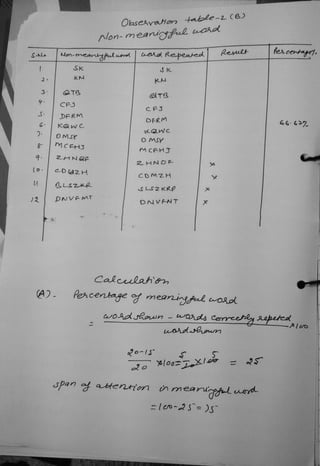 Observation table-2 (B)
Non-meaningful word
S.No Non-meaningful word Word Repeated Result Percentage%
1 SK SK
2. KN KN
3. QTB QTB
4. CFJ CFJ
5. DFRM DFRM
6. KQWC KQWC 66.67%
7. OMSY OMSY
8. MCFHJ MCFHJ
9. ZHNQF ZHNDF x
10. CDQZH CDMZH x
11 x
12 DNVFMT DNVFNT x
Calculation
(A)- Percentage of meaningful word
= word shown - words correctly repeated x100
word shown
20-15 x100 = 5 x100 = 25
20
span of attention in meaningful word
=100-25 = 75